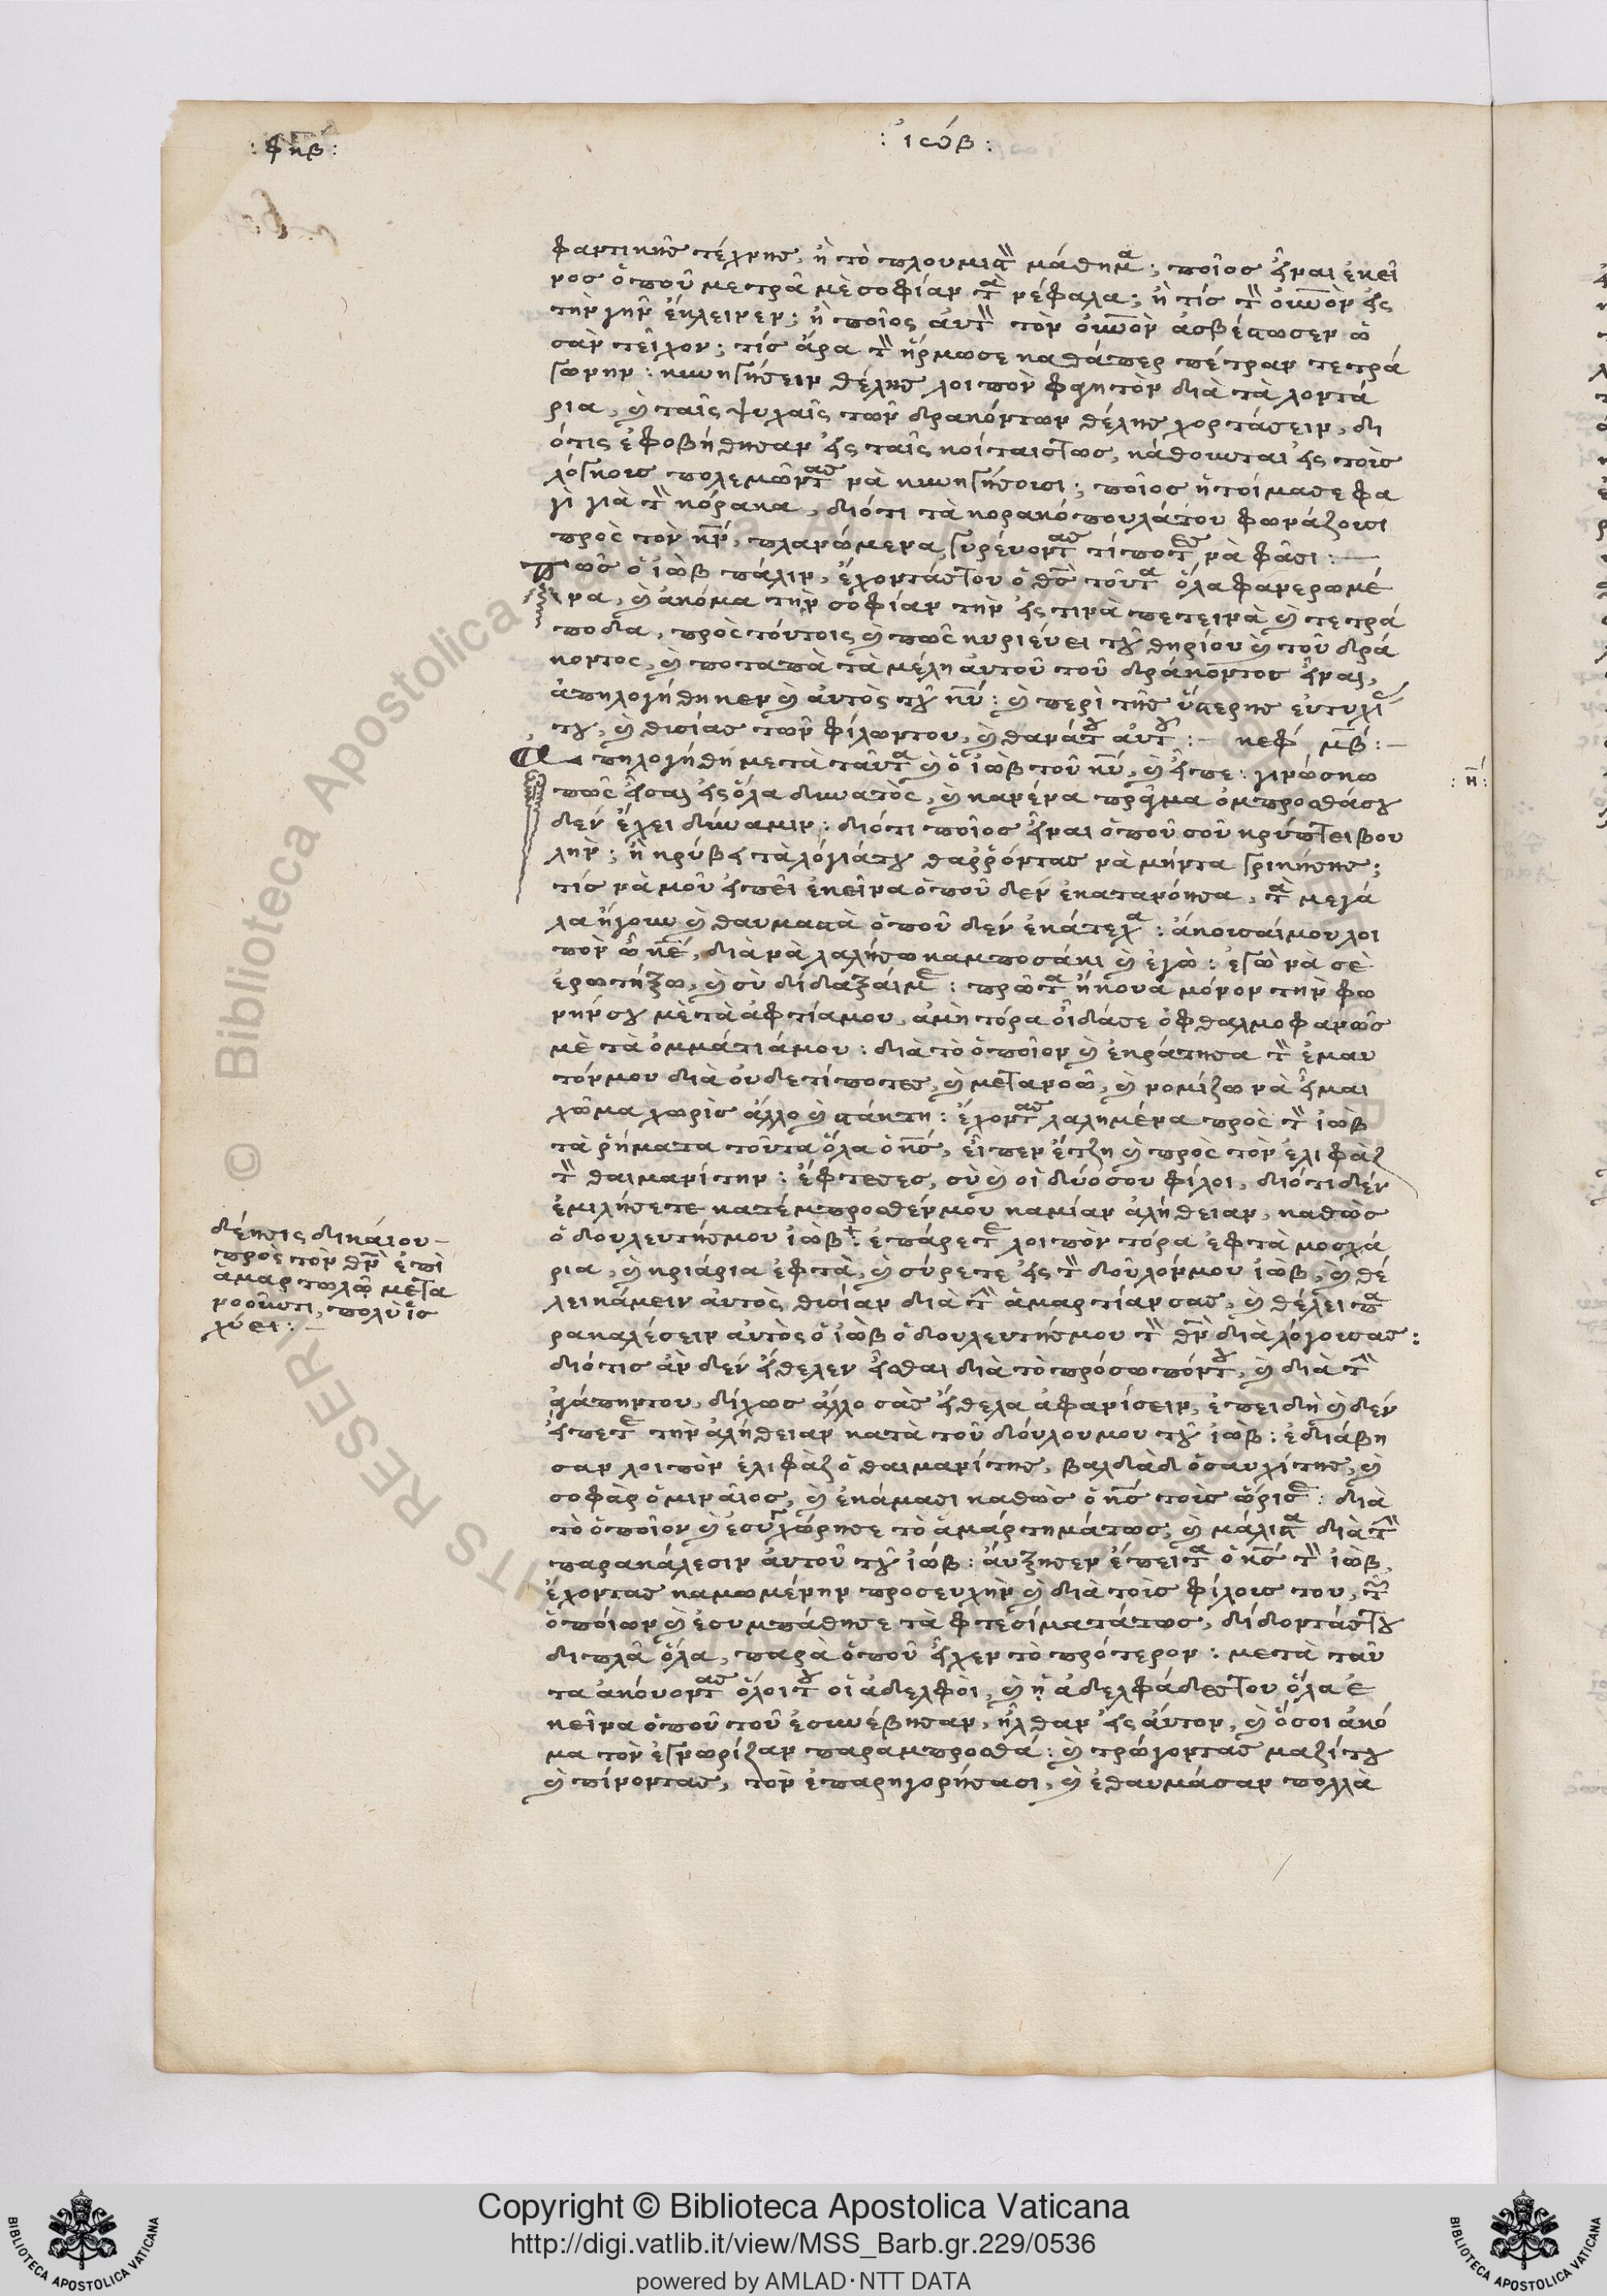 : φκβ :
: ἰώβ :
φαντικῆς τέχνης, ἢ τὸ πλουμιστὸν μάθημα; ποῖος εἶναι ἐκεῖ
νος ὁποῦ μετρᾶ μὲ σοφίαν τὰ νέφαλα; ἢ τίς τὸν οὐνὸν εἰς
τὴν γῆν ἔκλεινεν; ἢ ποῖος αὐτὸν τὸν οὐνὸν ἀσβέστωσεν ὡ
σὰν τεῖχον; τίς ἄρα τὸν ἥρμωσε καθάπερ πέτραν τετρά
γωνην: κυνηγήσειν θέλης λοιπὸν φαγητὸν διὰ τὰ λοντά
ρια, καὶ ταῖς ψυχαῖς τῶν δρακόντων θέλης χορτάσειν, δι
ότις ἐφοβήθησαν εἰς ταῖς κοίταιστως, κάθουνται εἰς τοὶς
λόγκοις πολεμῶντας νὰ κυνηγήσουσι; ποῖος ἡτοίμασε φα
γὶ γιὰ τὸν κόρακα, διότι τὰ κορακόπουλάτου φωνάζουσι
πρὸς τὸν κν, πλανώμενα, γυρεύοντας τίποτες νὰ φᾶσι: —
Πῶς ὁ ἰὼβ πάλιν, ἔχοντάς του ὁ θς τοῦτα ὅλα φανερωμέ
να, καὶ ἀκόμα τὴν σοφίαν τὴν εἰς τινὰ πετεινὰ καὶ τετρά
ποδα, πρὸς τούτοις καὶ πῶς κυριεύει τοῦ θηρίου καὶ τοῦ δρά
κοντος, καὶ ποταπὰ τὰ μέλη αὐτοῦ τοῦ δράκοντος εἶναι,
ἀπηλογήθηκεν καὶ αὐτὸς τοῦ κυ: καὶ περὶ τῆς ὕστερης εὐτυχί
του, καὶ θυσίας τῶν φίλωντου, καὶ θανάτου αὐτοῦ: — κεφ μβ: —
Απηλογήθη μετὰ ταῦτα καὶ ὁ ἰὼβ τοῦ κυ, καὶ εἶπε: γινώσκω
: κ :
πῶς εἶσαι εἰς ὅλα δυνατὸς, καὶ κανένα πρᾶγμα ὀμπροσθάσου
δεν ἔχει δύναμιν: διότι ποῖος εἶναι ὁποῦ σοῦ κρύπτει βου
λήν; ἢ κρύβει τὰ λόγιάτου θαῤῥόντας νὰ μήντα γρικήσης;
τίς νὰ μοῦ εἰπεῖ ἐκεῖνα ὁποῦ δεν ἐκατανόησα, τὰ μεγά
λα ἤγουν καὶ θαυμαστὰ ὁποῦ δεν ἐκάτεχα: ἀκουσαίμου λοι
πὸν ὦ κε, διὰ νὰ λαλήσω καμποσάκι καὶ ἐγὼ: ἐγὼ νὰ σὲ
ἐρωτήξω, καὶ σὺ δίδαξαίμε: πρῶτα ἤκουα μόνον τὴν φω
νήνσου μὲ τὰ ἀφτίαμου, ἀμὴ τόρα οἶδάσε ὀφθαλμοφανῶς
μὲ τὰ ὀμμάτιάμου: διὰ τὸ ὁποῖον καὶ ἐκράτησα τὸν ἐμαυ
τόνμου διὰ οὐδετίποτες, καὶ μετανοῶ, καὶ νομίζω νὰ εἶμαι
χῶμα χωρὶς ἄλλο καὶ στάκτη: ἔχοντας λαλημένα πρὸς τὸν ἰὼβ
τὰ ῥήματα τοῦτα ὅλα ὁ κς, εἶπεν ἔτζη καὶ πρὸς τὸν ἐλιφὰζ
τὸν θαιμανίτην: ἔφτεσες, σὺ καὶ οἱ δύοσου φίλοι, διότι δέν
ἐμιλήσετε κατέμπροσθένμου καμίαν ἀλήθειαν, καθὼς
ὁ δουλευτήσμου ἰὼβ: ἐπάρετε λοιπὸν τόρα ἐφτὰ μοσχά
ρια, καὶ κριάρια ἐφτὰ, καὶ σύρετε εἰς τὸν δοῦλόνμου ἰὼβ, καὶ θέ
λει κάμειν αὐτὸς θυσίαν διὰ τὴν ἁμαρτίανσας, καὶ θέλει πα
ρακαλέσειν αὐτὸς ὁ ἰὼβ ὁ δουλευτήσμου τὸν θν διὰ λόγουσας:
διότις ἀν δεν εἴθελεν εἶσθαι διὰ τὸ πρόσωπόντου, καὶ διὰ τὴν
ἀγάπηντου, δίχως ἄλλο σὰς εἴθελα ἀφανίσειν, ἐπειδὴ καὶ δέν
εἴπετε τὴν ἀλήθειαν κατὰ τοῦ δούλουμου τοῦ ἰὼβ: ἐδιάβη
σαν λοιπὸν ἐλιφὰζ ὁ θαιμανίτης, βαλδὰδ ὁ σαυχίτης, καὶ
σοφὰρ ὁ μιναῖος, καὶ ἐκάμασι καθὼς ὁ κς τοὶς ὥρισε: διὰ
τὸ ὁποῖον καὶ ἐσυγχώρησε τὸ ἁμάρτημάτως, καὶ μάλιστα διὰ τὴν
παρακάλεσιν αὐτοῦ τοῦ ἰώβ: αὔξησεν ἔπειτα ὁ κς τὸν ἰὼβ,
ἔχοντας καμωμένην προσευχὴν καὶ διὰ τοὶς φίλους του, τῶν
ὁποίων καὶ ἐσυμπάθησε τὰ φτεσίματάτως, δίδοντάς του
διπλᾶ ὅλα, παρὰ ὁποῦ εἶχεν τὸ πρότερον: μετὰ ταῦ
τα ἀκούοντας ὅλοιτου οἱ ἀδελφοὶ, καὶ ᾑ ἀδελφάδες του ὅλα ἐ
κεῖνα ὁποῦ τοῦ ἐσυνέβησαν, ἦλθαν εἰς αὐτον, καὶ ὅσοι ἀκό
μα τὸν ἐγνωρίζαν παραμπροσθά: καὶ τρώγοντας μαζίτου
καὶ πίνοντας, τὸν ἐπαρηγορήσασι, καὶ ἐθαυμάσαν πολλὰ
δέησις δικαίου —
πρὸς τὸν θν ἐπὶ
ἁμαρτωλῶ μετα
νοοῦντι, πολὺ ἰσ
χύει: —
© Biblioteca Apostolica Vaticana
Copyright © Biblioteca Apostolica Vaticana
http://digi.vatlib.it/view/MSS_Barb.gr.229/0536
powered by AMLAD·NTT DATA
BIBLIOTECA APOSTOLICA VATICANA
BIBLIOTECA APOSTOLICA VATICANA